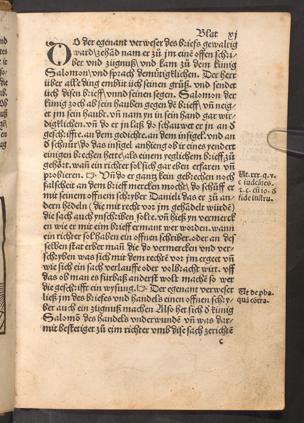 Blat xj
O der egenant verweser des briefs gewaltig
ward gehād nam er zū jm eine offen schri-
ber vnd zügnuß/ vnd kam zū dem künig
Salomon/ vnd sprach demütigklichen. Der herr
über alle ding embüt üch seinen grůß. vnd send
üch disen brieff/ vnnd seinen segen. Salomon der
künig zoch ab sein hauben gegen dē brieff. vñ neig
et jm sein haubt. vñ nam yn in sein hand gar wir-
digklichen. vñ do er jn laß do schauwet er jn an d̕
geschrifft. an dem gedicht. an dem insigel. vnd an
d̕ schnůr/ do das insigel anhieng ob it eines yendert
einigen brechen hett/ als einem yeglichem brieff zů
gehört. wañ ein richter sol sich gar eben erfaren vñ
probieren. Vñ do er gantz kein gebrechen noch
falscheit an dem brieff mercken mocht/ do schůff er
mit seinem offnem schryber Daniel das er zů an-
dern hōdeln (die mit recht vor jm gehādelt würdē)
die sach auch ynschriben solte. vñ hieß yn vermerck
en wie er mit eim brieff ermant wer worden. wann
ein richter sol haben ein offnen schriber. oder an der
selben stat erber man/ die do vermercken vnd ver-
schryben was sich mit dem recht vor jm ergeet vñ
wie sich ein sach verlauffe oder volbracht wirt. vff
das ob man es fürbaß anderst wolt mache so wer
die geschrifft ein wysung. Der egenant verweser
ließ jm des brieves vnd handels einen offnen schry-
ber auch ein zügnuß machen Also het sich d̕ künig
Salomō des handels vnderwunde vñ was dar-
mit bestetiget zů eim richter vmb dise sach zerichtē
c